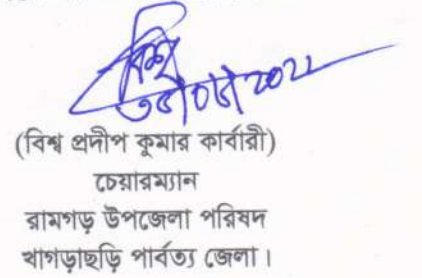 (বিশ্ব প্রদীপ কুমার কার্বারী)
চেয়ারম্যান
রামগড় উপজেলা পরিষদ
খাগড়াছড়ি পার্বত্য জেলা।